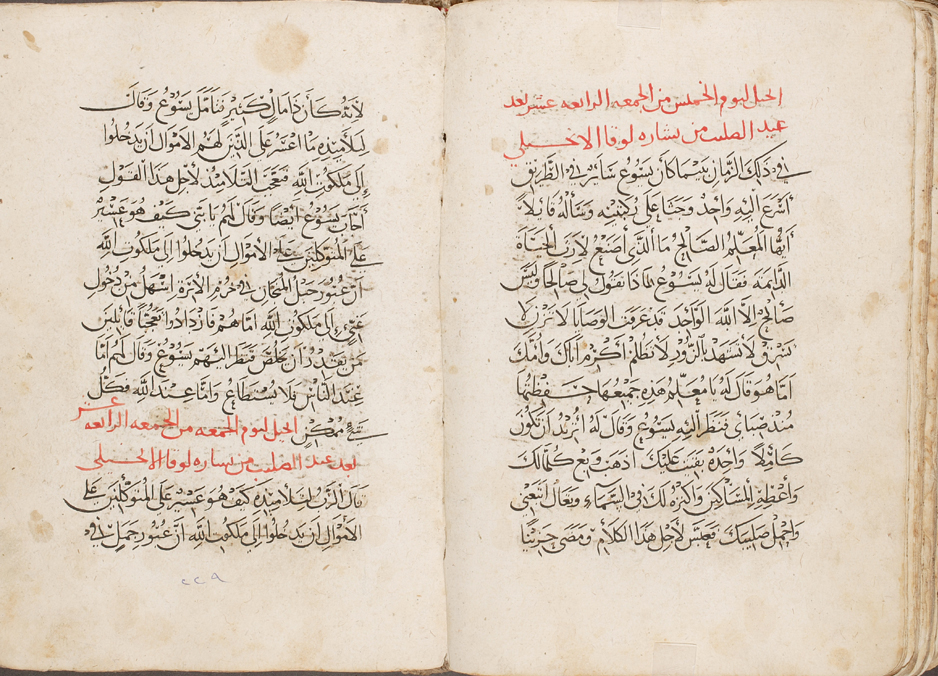 انجيل ليوم الخميس من الجمعه الرابعه عشر بعد
عيد الصليب من بشاره لوقا الانجيلي
في ذلك الزمان بينما كان يسوع سائر في الطريق
اسرع اليه واحد وجثا على ركبتيه وسأله قايلاً
ايها المعلم الصالح ما الذي اصنع لأرث الحياة
الدايمه فقال له يسوع لماذا تقول لي صالحا وليس
صالح الا الله الواحد قد عرفت الوصايا لا تزن لا
تسرق لا تشهد بالزور لا تظلم اكرم اباك وامك
اما هو قال له يا معلم هذه جميعها حفظتها
منذ صباي فنظر اليه يسوع وقال له اتريد ان تكون
كاملاً واحده بقيت عليك اذهب وبع كلمالك
واعطه المساكين واكنزه لك في السماء وتعال اتبعني
واحمل صليبك فعبس لأجل هذا الكلام ومضى حزينًا
لأنه كان ذا مال كثير فتأمل يسوع وقال
لتلاميذه ما اعسر على الذين لهم الاموال ان يدخلوا
إلى ملكوت الله فتعجب التلاميذ لأجل هذا القول
اجاب يسوع ايضًا وقال لهم يا بني كيف هو عسير
على المتوكلين على الاموال ان يدخلوا الى ملكوت الله
ان عبور حبل في خرم الأبرة اسهل من دخول
غني إلى ملكوت الله اما هم فازدادوا تعجبًا قائلين
من يقدر ان يخلص فنظر اليهم يسوع وقال لهم اما
عند الناس فلا يستطاع واما عند الله فكل
شي ممكن انجيل ليوم الجمعه من الجمعه الرابعه عشر
بعد عيد الصليب من بشاره لوقا الانجيلي
قال الرب لتلاميذه كيف هو عسير على المتوكلين على
الأموال ان يدخلوا إلى ملكوت الله ان عبور جمل في
٢٢٩